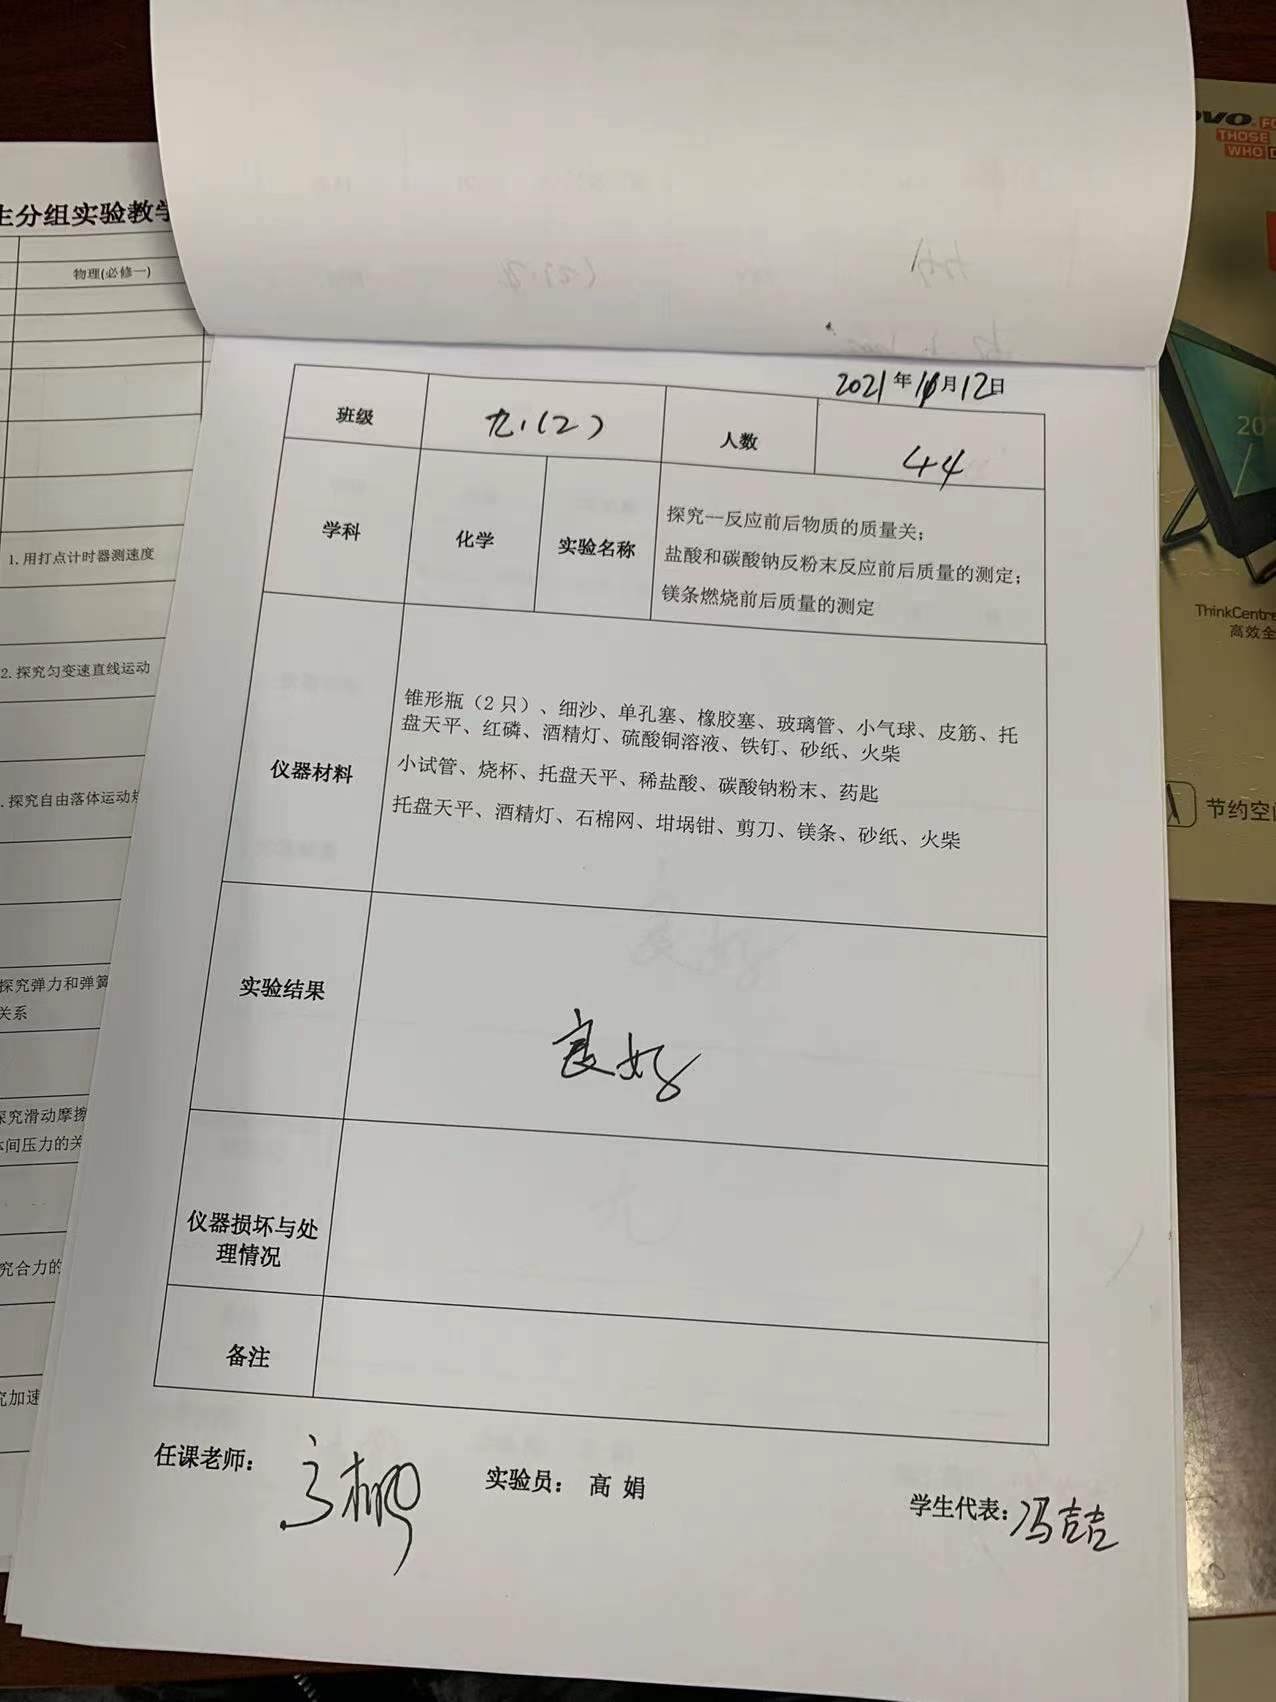 生分组实验教学
物理(必修一)
1.用打点计时器测速度
2.探究匀变速直线运动
.探究自由落体运动规
探究弹力和弹簧
关系
探究滑动摩擦
体间压力的关
究合力的
究加速
2021年11月12日
班级 九.(2) 人数 44
学科 化学 实验名称
探究--反应前后物质的质量关;
盐酸和碳酸钠反粉末反应前后质量的测定;
镁条燃烧前后质量的测定
仪器材料
锥形瓶(2只)、细沙、单孔塞、橡胶塞、玻璃管、小气球、皮筋、托
盘天平、红磷、酒精灯、硫酸铜溶液、铁钉、砂纸、火柴
小试管、烧杯、托盘天平、稀盐酸、碳酸钠粉末、药匙
托盘天平、酒精灯、石棉网、坩埚钳、剪刀、镁条、砂纸、火柴
实验结果 良好
仪器损坏与处
理情况
备注
任课老师: 实验员: 高 娟 学生代表:冯喆
THOSE
WHO
ThinkCentre
高效全
节约空间